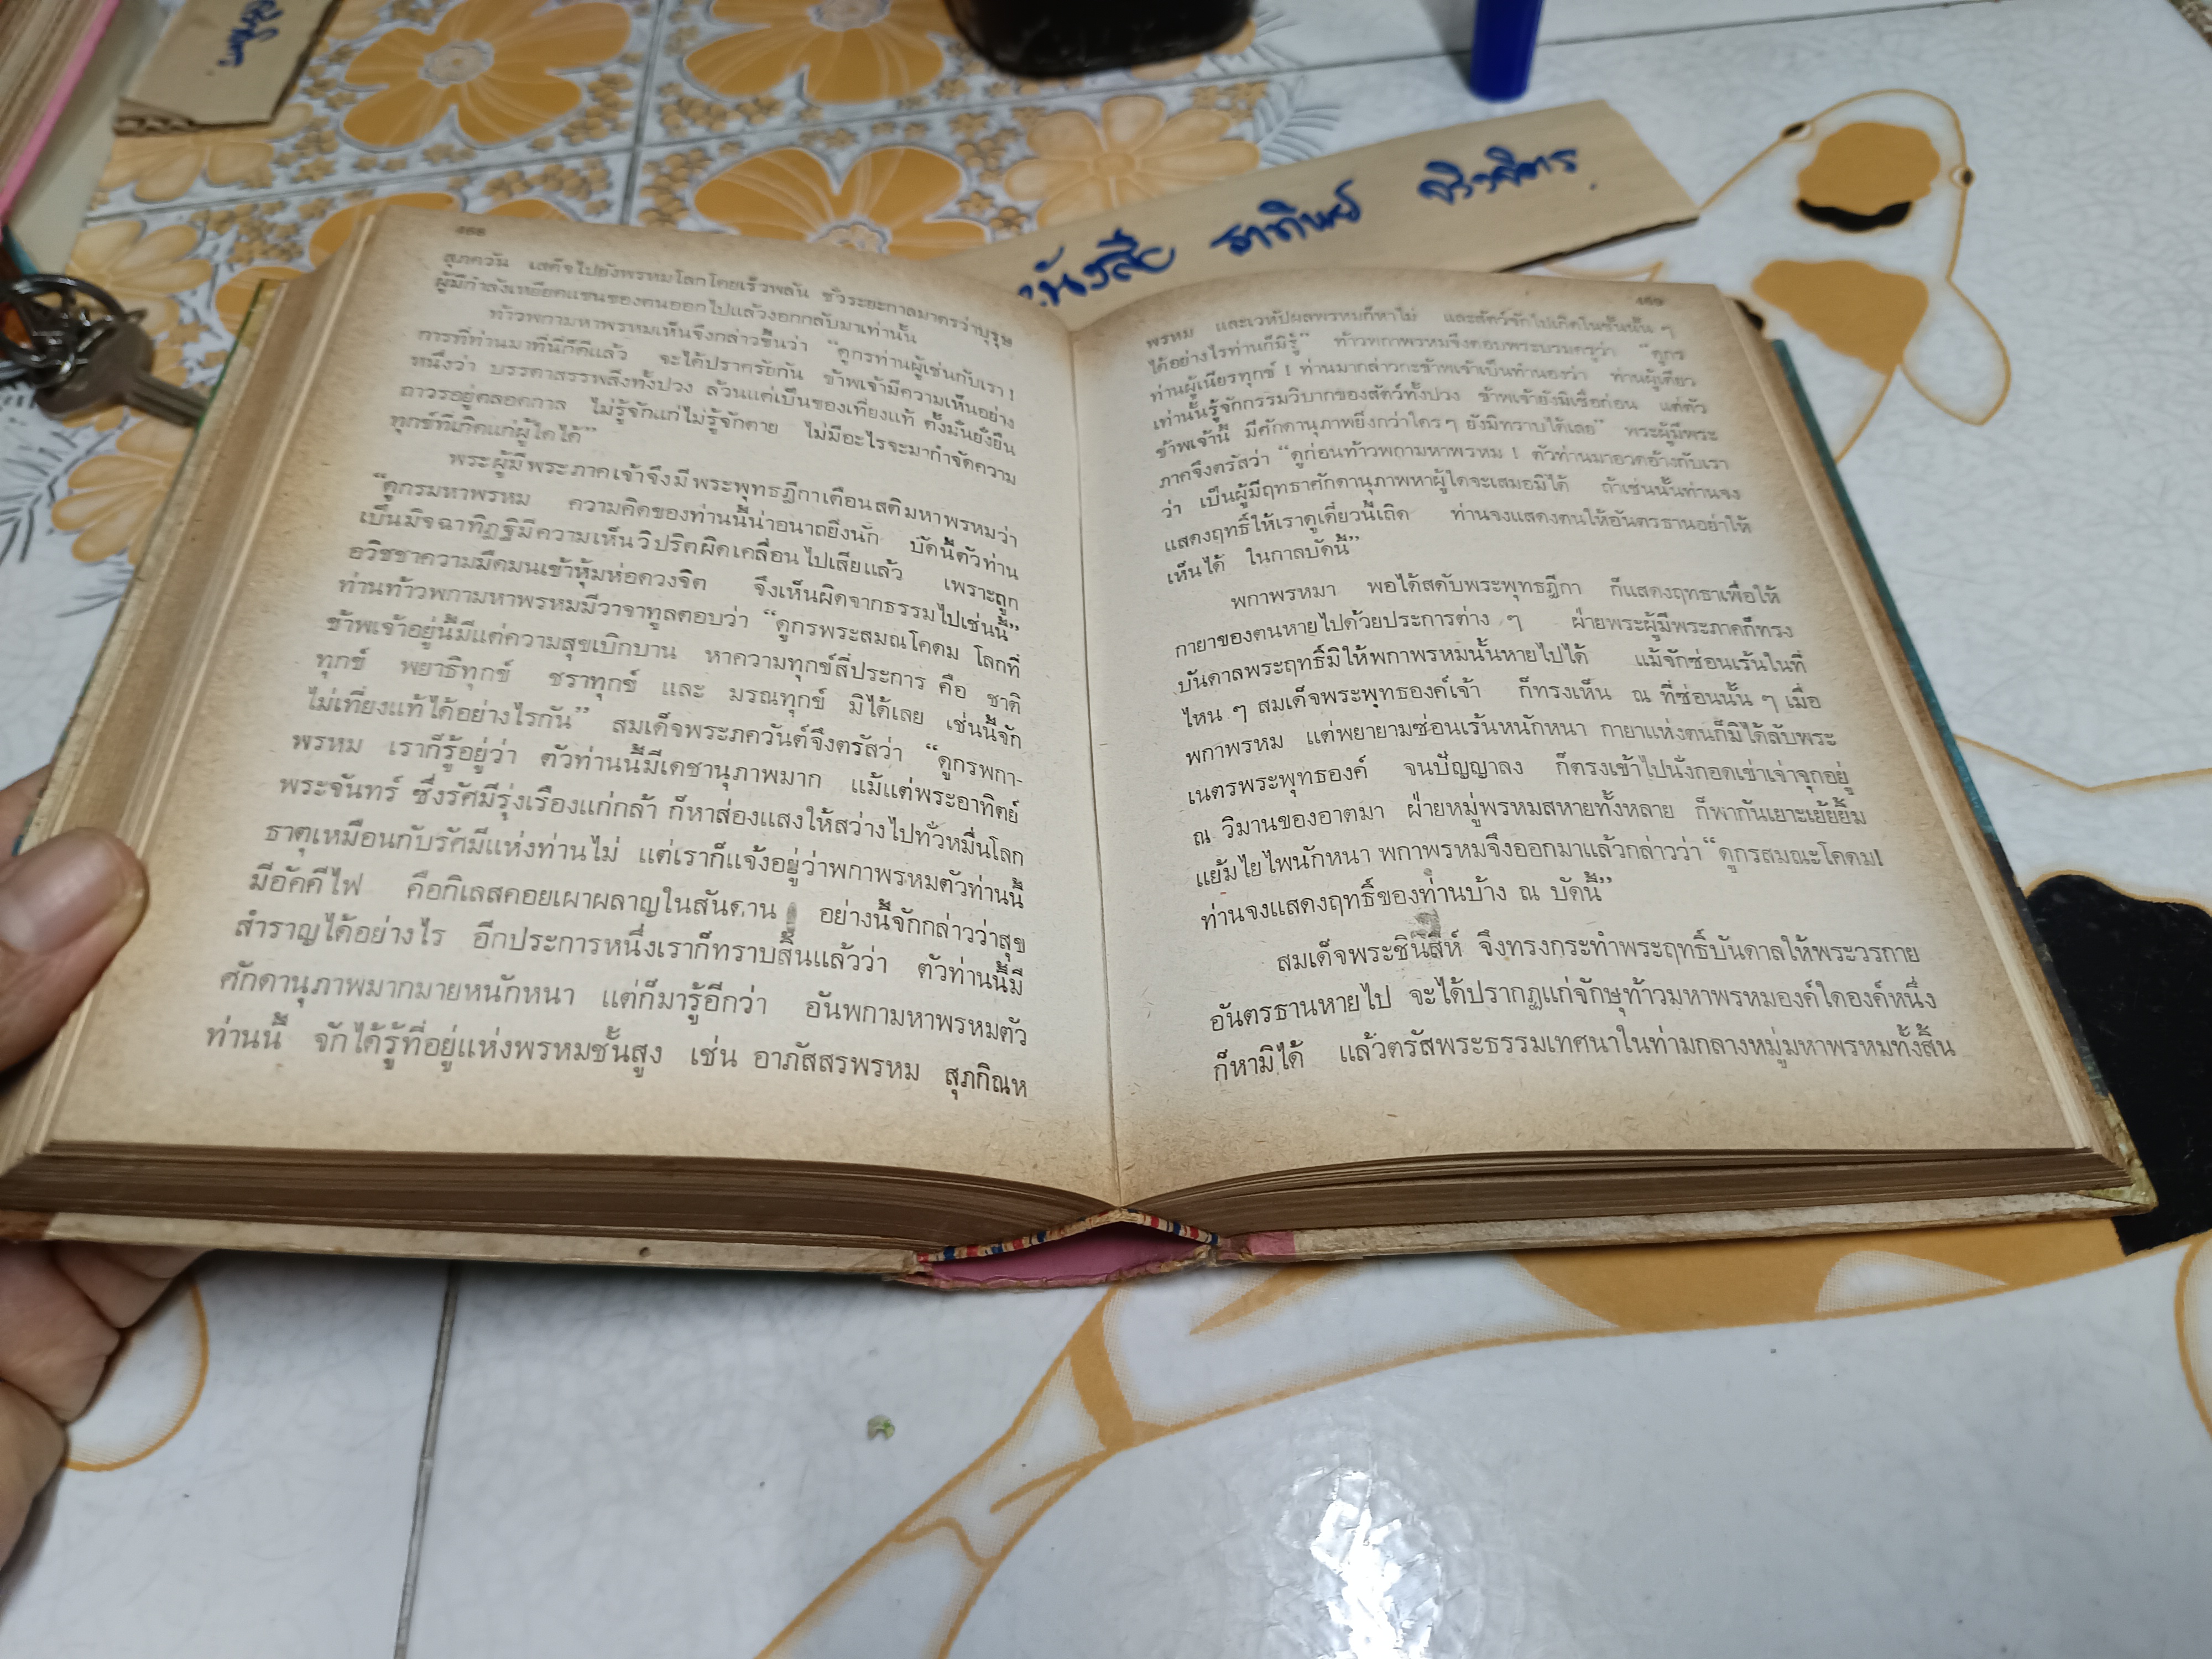 หนังสือ ธาทิพย์ ฉวีวจิตร
๔๕๘
สุภควัน เสด็จไปยังพรหมโลกโดยเร็วพลัน ชั่วระยะกาลมาตรว่าบุรุษ
ผู้มีกำลังเหยียดแขนของตนออกไปแล้วงอกกลับมาเท่านั้น
ท้าวพกามหาพรหมเห็นจึงกล่าวขึ้นว่า “ดูกรท่านผู้เช่นกับเรา!
การที่ท่านมาที่นี่ก็ดีแล้ว จะได้ปราศรัยกัน ข้าพเจ้ามีความเห็นอย่าง
หนึ่งว่า บรรดาสรรพสิ่งทั้งปวง ล้วนแต่เป็นของเที่ยงแท้ ตั้งมั่นยั่งยืน
ถาวรอยู่ตลอดกาล ไม่รู้จักแก่ไม่รู้จักตาย ไม่มีอะไรจะมากำจัดความ
ทุกข์ที่เกิดแก่ผู้ใดได้”
พระผู้มีพระภาคเจ้าจึงมีพระพุทธฎีกาเตือนสติมหาพรหมว่า
“ดูกรมหาพรหม ความคิดของท่านนี้น่าอนาถยิ่งนัก บัดนี้ตัวท่าน
เป็นมิจฉาทิฏฐิมีความเห็นวิปริตผิดเคลื่อนไปเสียแล้ว เพราะถูก
อวิชชาความมืดมนเข้าหุ้มห่อดวงจิต จึงเห็นผิดจากธรรมไปเช่นนี้”
ท่านท้าวพกามหาพรหมมีวาจาทูลตอบว่า “ดูกรพระสมณโคดม โลกที่
ข้าพเจ้าอยู่นี้มีแต่ความสุขเบิกบาน หาความทุกข์สี่ประการ คือ ชาติ
ทุกข์ พยาธิทุกข์ ชราทุกข์ และ มรณทุกข์ มิได้เลย เช่นนี้จัก
ไม่เที่ยงแท้ได้อย่างไรกัน” สมเด็จพระภควันต์จึงตรัสว่า “ดูกรพกา-
พรหม เราก็รู้อยู่ว่า ตัวท่านนี้มีเดชานุภาพมาก แม้แต่พระอาทิตย์
พระจันทร์ ซึ่งรัศมีรุ่งเรืองแก่กล้า ก็หาส่องแสงให้สว่างไปทั่วหมื่นโลก
ธาตุเหมือนกับรัศมีแห่งท่านไม่ แต่เราก็แจ้งอยู่ว่าพกาพรหมตัวท่านนี้
มีอัคคีไฟ คือกิเลสคอยเผาผลาญในสันดาน อย่างนี้จักกล่าวว่าสุข
สำราญได้อย่างไร อีกประการหนึ่งเราก็ทราบสิ้นแล้วว่า ตัวท่านนี้มี
ศักดานุภาพมากมายหนักหนา แต่ก็มารู้อีกว่า อันพกามหาพรหมตัว
ท่านนี้ จักได้รู้ที่อยู่แห่งพรหมชั้นสูง เช่น อาภัสสรพรหม สุภกิณห
๔๕๙
พรหม และเวหัปผลพรหมก็หาไม่ และสัตว์จักไปเกิดในชั้นนั้น ๆ
ได้อย่างไรท่านก็มิรู้” ท้าวพกาพรหมจึงตอบพระบรมครูว่า “ดูกร
ท่านผู้เนียรทุกข์! ท่านมากล่าวกะข้าพเจ้าเป็นทำนองว่า ท่านผู้เดียว
เท่านั้นรู้จักกรรมวิบากของสัตว์ทั้งปวง ข้าพเจ้ายังมิเชื่อก่อน แต่ตัว
ข้าพเจ้านี้ มีศักดานุภาพยิ่งกว่าใครๆ ยังมิทราบได้เลย” พระผู้มีพระ
ภาคจึงตรัสว่า “ดูก่อนท้าวพกามหาพรหม! ตัวท่านมาอวดอ้างกับเรา
ว่า เป็นผู้มีฤทธาศักดานุภาพหาผู้ใดจะเสมอมิได้ ถ้าเช่นนั้นท่านจง
แสดงฤทธิ์ให้เราดูเดี๋ยวนี้เถิด ท่านจงแสดงตนให้อันตรธานอย่าให้
เห็นได้ ในกาลบัดนี้”
พกาพรหมา พอได้สดับพระพุทธฎีกา ก็แสดงฤทธาเพื่อให้
กายาของตนหายไปด้วยประการต่าง ๆ ฝ่ายพระผู้มีพระภาคก็ทรง
บันดาลพระฤทธิ์มิให้พกาพรหมนั้นหายไปได้ แม้จักซ่อนเร้นในที่
ไหน ๆ สมเด็จพระพุทธองค์เจ้า ก็ทรงเห็น ณ ที่ซ่อนนั้น ๆ เมื่อ
พกาพรหม แต่พยายามซ่อนเร้นหนักหนา กายาแห่งตนก็มิได้ลับพระ
เนตรพระพุทธองค์ จนปัญญาลง ก็ตรงเข้าไปนั่งกอดเข่าเจ่าจุกอยู่
ณ วิมานของอาตมา ฝ่ายหมู่พรหมสหายทั้งหลาย ก็พากันเยาะเย้ยยิ้ม
แย้มไยไพนักหนา พกาพรหมจึงออกมาแล้วกล่าวว่า “ดูกรสมณะโคดม!
ท่านจงแสดงฤทธิ์ของท่านบ้าง ณ บัดนี้”
สมเด็จพระชินสีห์ จึงทรงกระทำพระฤทธิ์บันดาลให้พระวรกาย
อันตรธานหายไป จะได้ปรากฏแก่จักษุท้าวมหาพรหมองค์ใดองค์หนึ่ง
ก็หามิได้ แล้วตรัสพระธรรมเทศนาในท่ามกลางหมู่มหาพรหมทั้งสิ้น